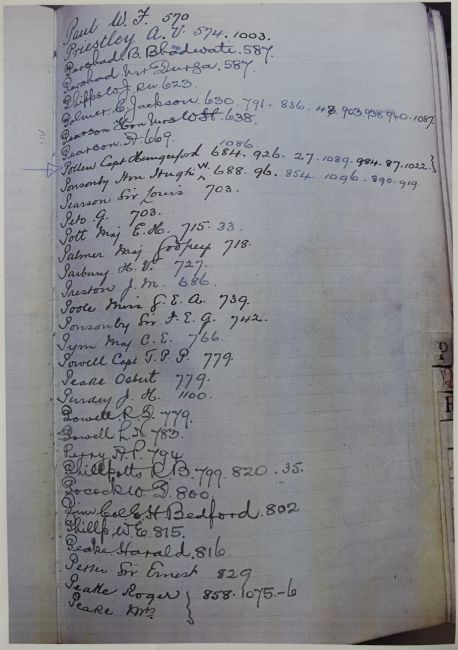 Paul W. F. 570
Priestley A. V. 574. 1003.
Parshad. B. Bhadwati. 587.
Parshad. Mrs Durga. 587.
Phipps W. J. Du 623.
Palmer. C. Jackson. 630. 791. 836. 903. 938. 940. 1087
Pearson Hon Mrs 638.
Pearson. A 669.
1086
Pollen Capt Hungerford 684. 926. 27. 1089. 984. 87. 1022. }
Ponsonby Hon Hugh W. 688. 96. 854. 1096. 890. 919.
Pearson Sir Louis 703.
Peto G. 703.
Pott Maj E. H. 715. 33.
Palmer Maj Godfrey 718.
Parbury H. V. 727.
Preston J. M. 686.
Poole Miss G. E. A. 739.
Ponsonby Sir F. E. G. 742.
Pym Maj C. E. 766.
Powell Capt T. P. P. 779.
Peake Osbert 779.
Pursley J. H. 1100.
Powell R. D. 779.
Powell L. H. 783.
Perry A. P. 794
Phillpotts R. B. 799. 820. 35.
Pocock W. D. 800.
Pim Col E. H Bedford. 802
Phillp W. E. 815.
Peake Harald. 816.
Petter Sir Ernest 829
Peake Roger } 858. 1075-6
Peake Mrs
P